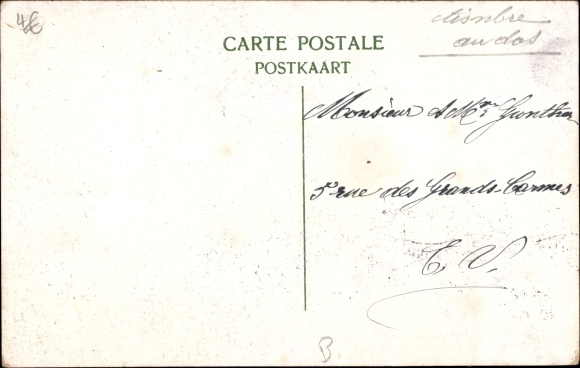 4€
timbre
au dos
CARTE POSTALE
POSTKAART
Monsieur & Mme Gunther
5 rue des Grands-Carmes
E. V.
B